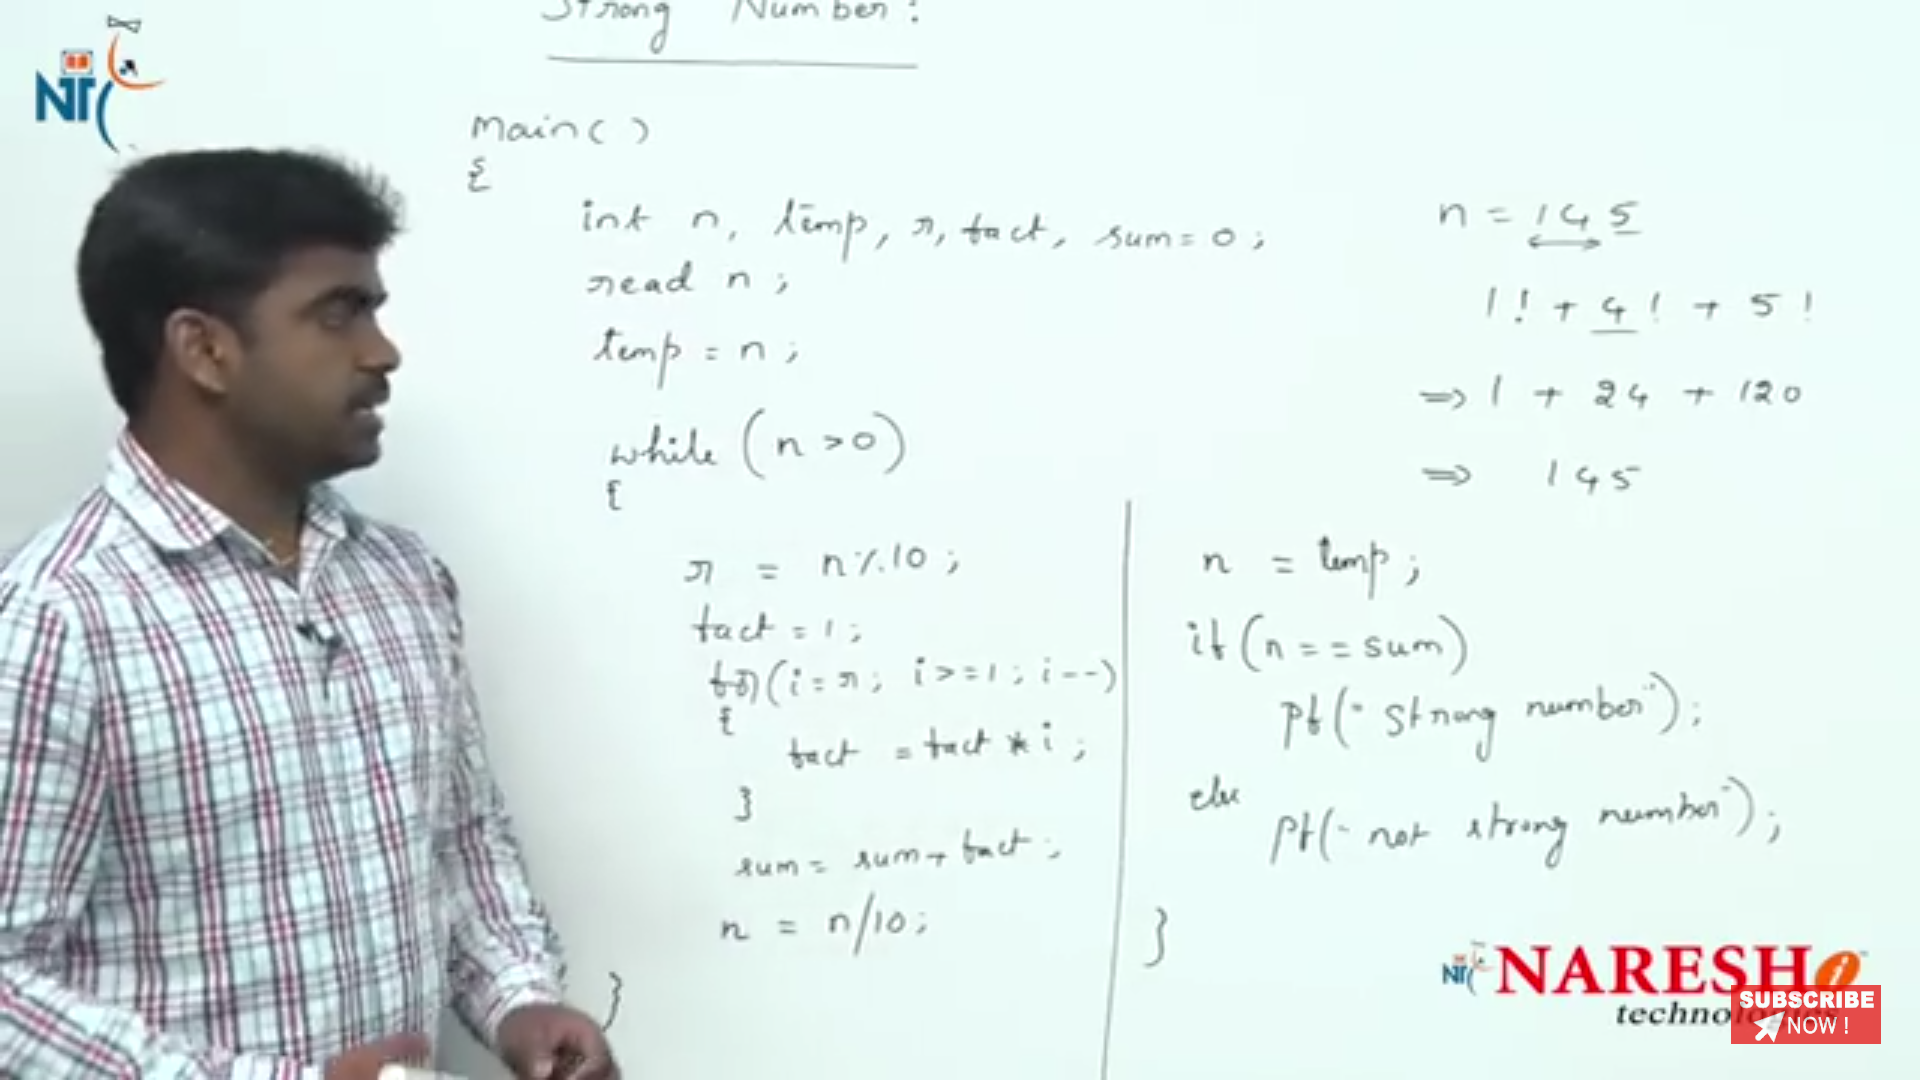 Strong Number :
main( )
{
int n, temp, r, fact, sum = 0 ;
read n ;
temp = n ;
while (n >0)
{
r = n%10 ;
fact = 1 ;
for(i = r ; i >= 1 ; i--)
{
fact = fact * i ;
}
sum = sum + fact ;
n = n/10 ;
}
n = 145
1! + 4! + 5!
=> 1 + 24 + 120
=> 145
n = temp ;
if (n == sum)
pf(" Strong number");
else
pf(" not strong number");
}
NT
NT
NARESH i
SUBSCRIBE
NOW !